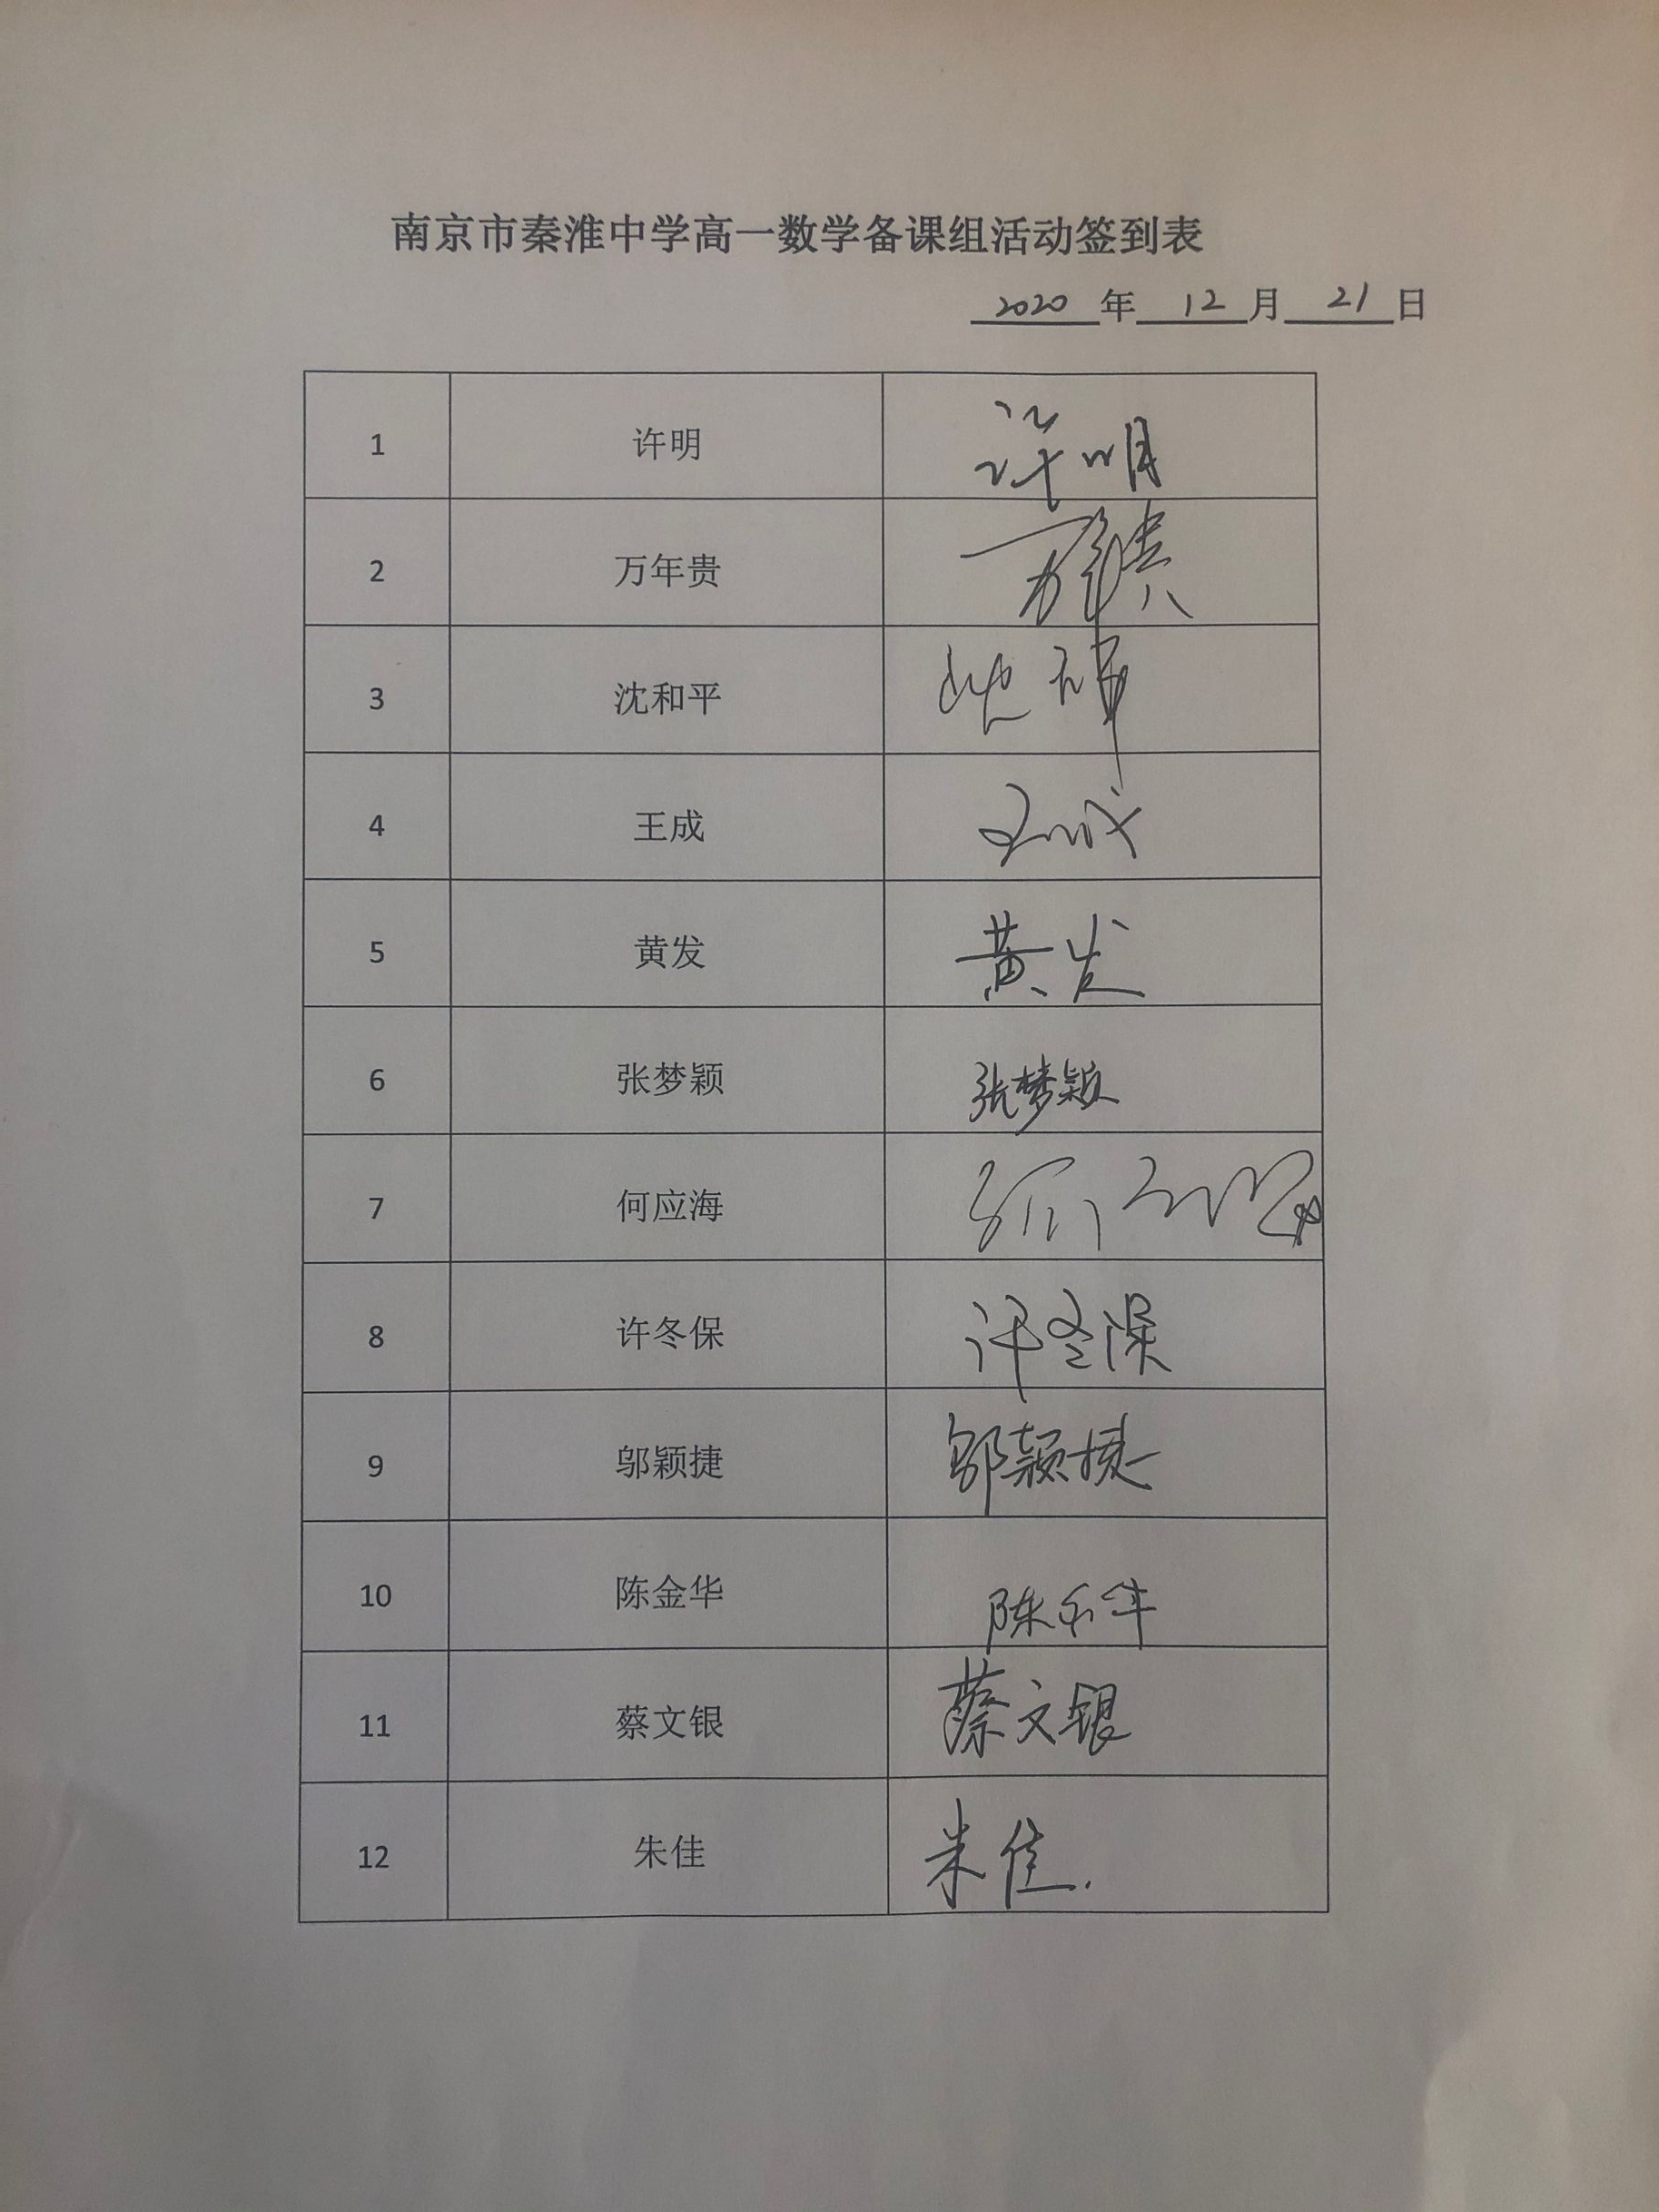 南京市秦淮中学高一数学备课组活动签到表
2020 年 12 月 21 日
1 许明 许明
2 万年贵 万年贵
3 沈和平 沈和平
4 王成 王成
5 黄发 黄发
6 张梦颖 张梦颖
7 何应海
8 许冬保 许冬保
9 邬颖捷 邬颖捷
10 陈金华 陈金华
11 蔡文银 蔡文银
12 朱佳 朱佳.